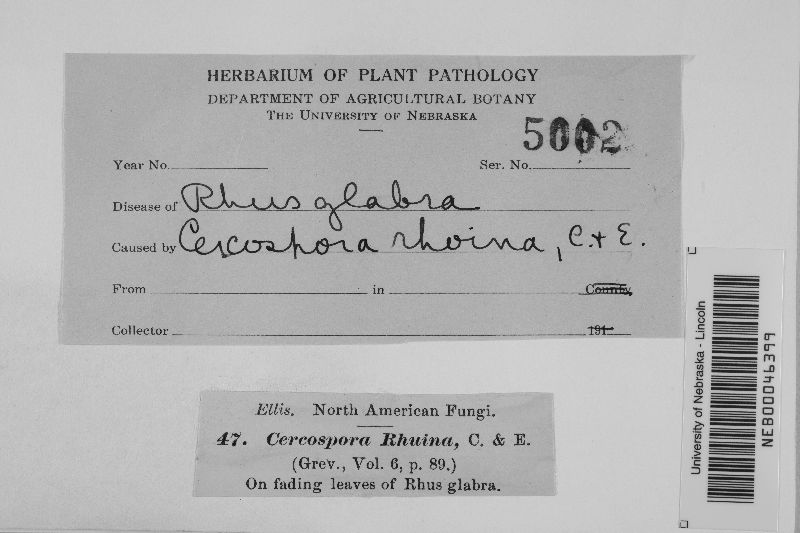 HERBARIUM OF PLANT PATHOLOGY
DEPARTMENT OF AGRICULTURAL BOTANY
THE UNIVERSITY OF NEBRASKA
5002
Year No. Ser. No.
Disease of Rhus glabra
Caused by Cercospora rhoina, C. & E.
From in County,
Collector 191
Ellis. North American Fungi.
47. Cercospora Rhuina, C. & E.
(Grev., Vol. 6, p. 89.)
On fading leaves of Rhus glabra.
University of Nebraska - Lincoln
NEB00046399